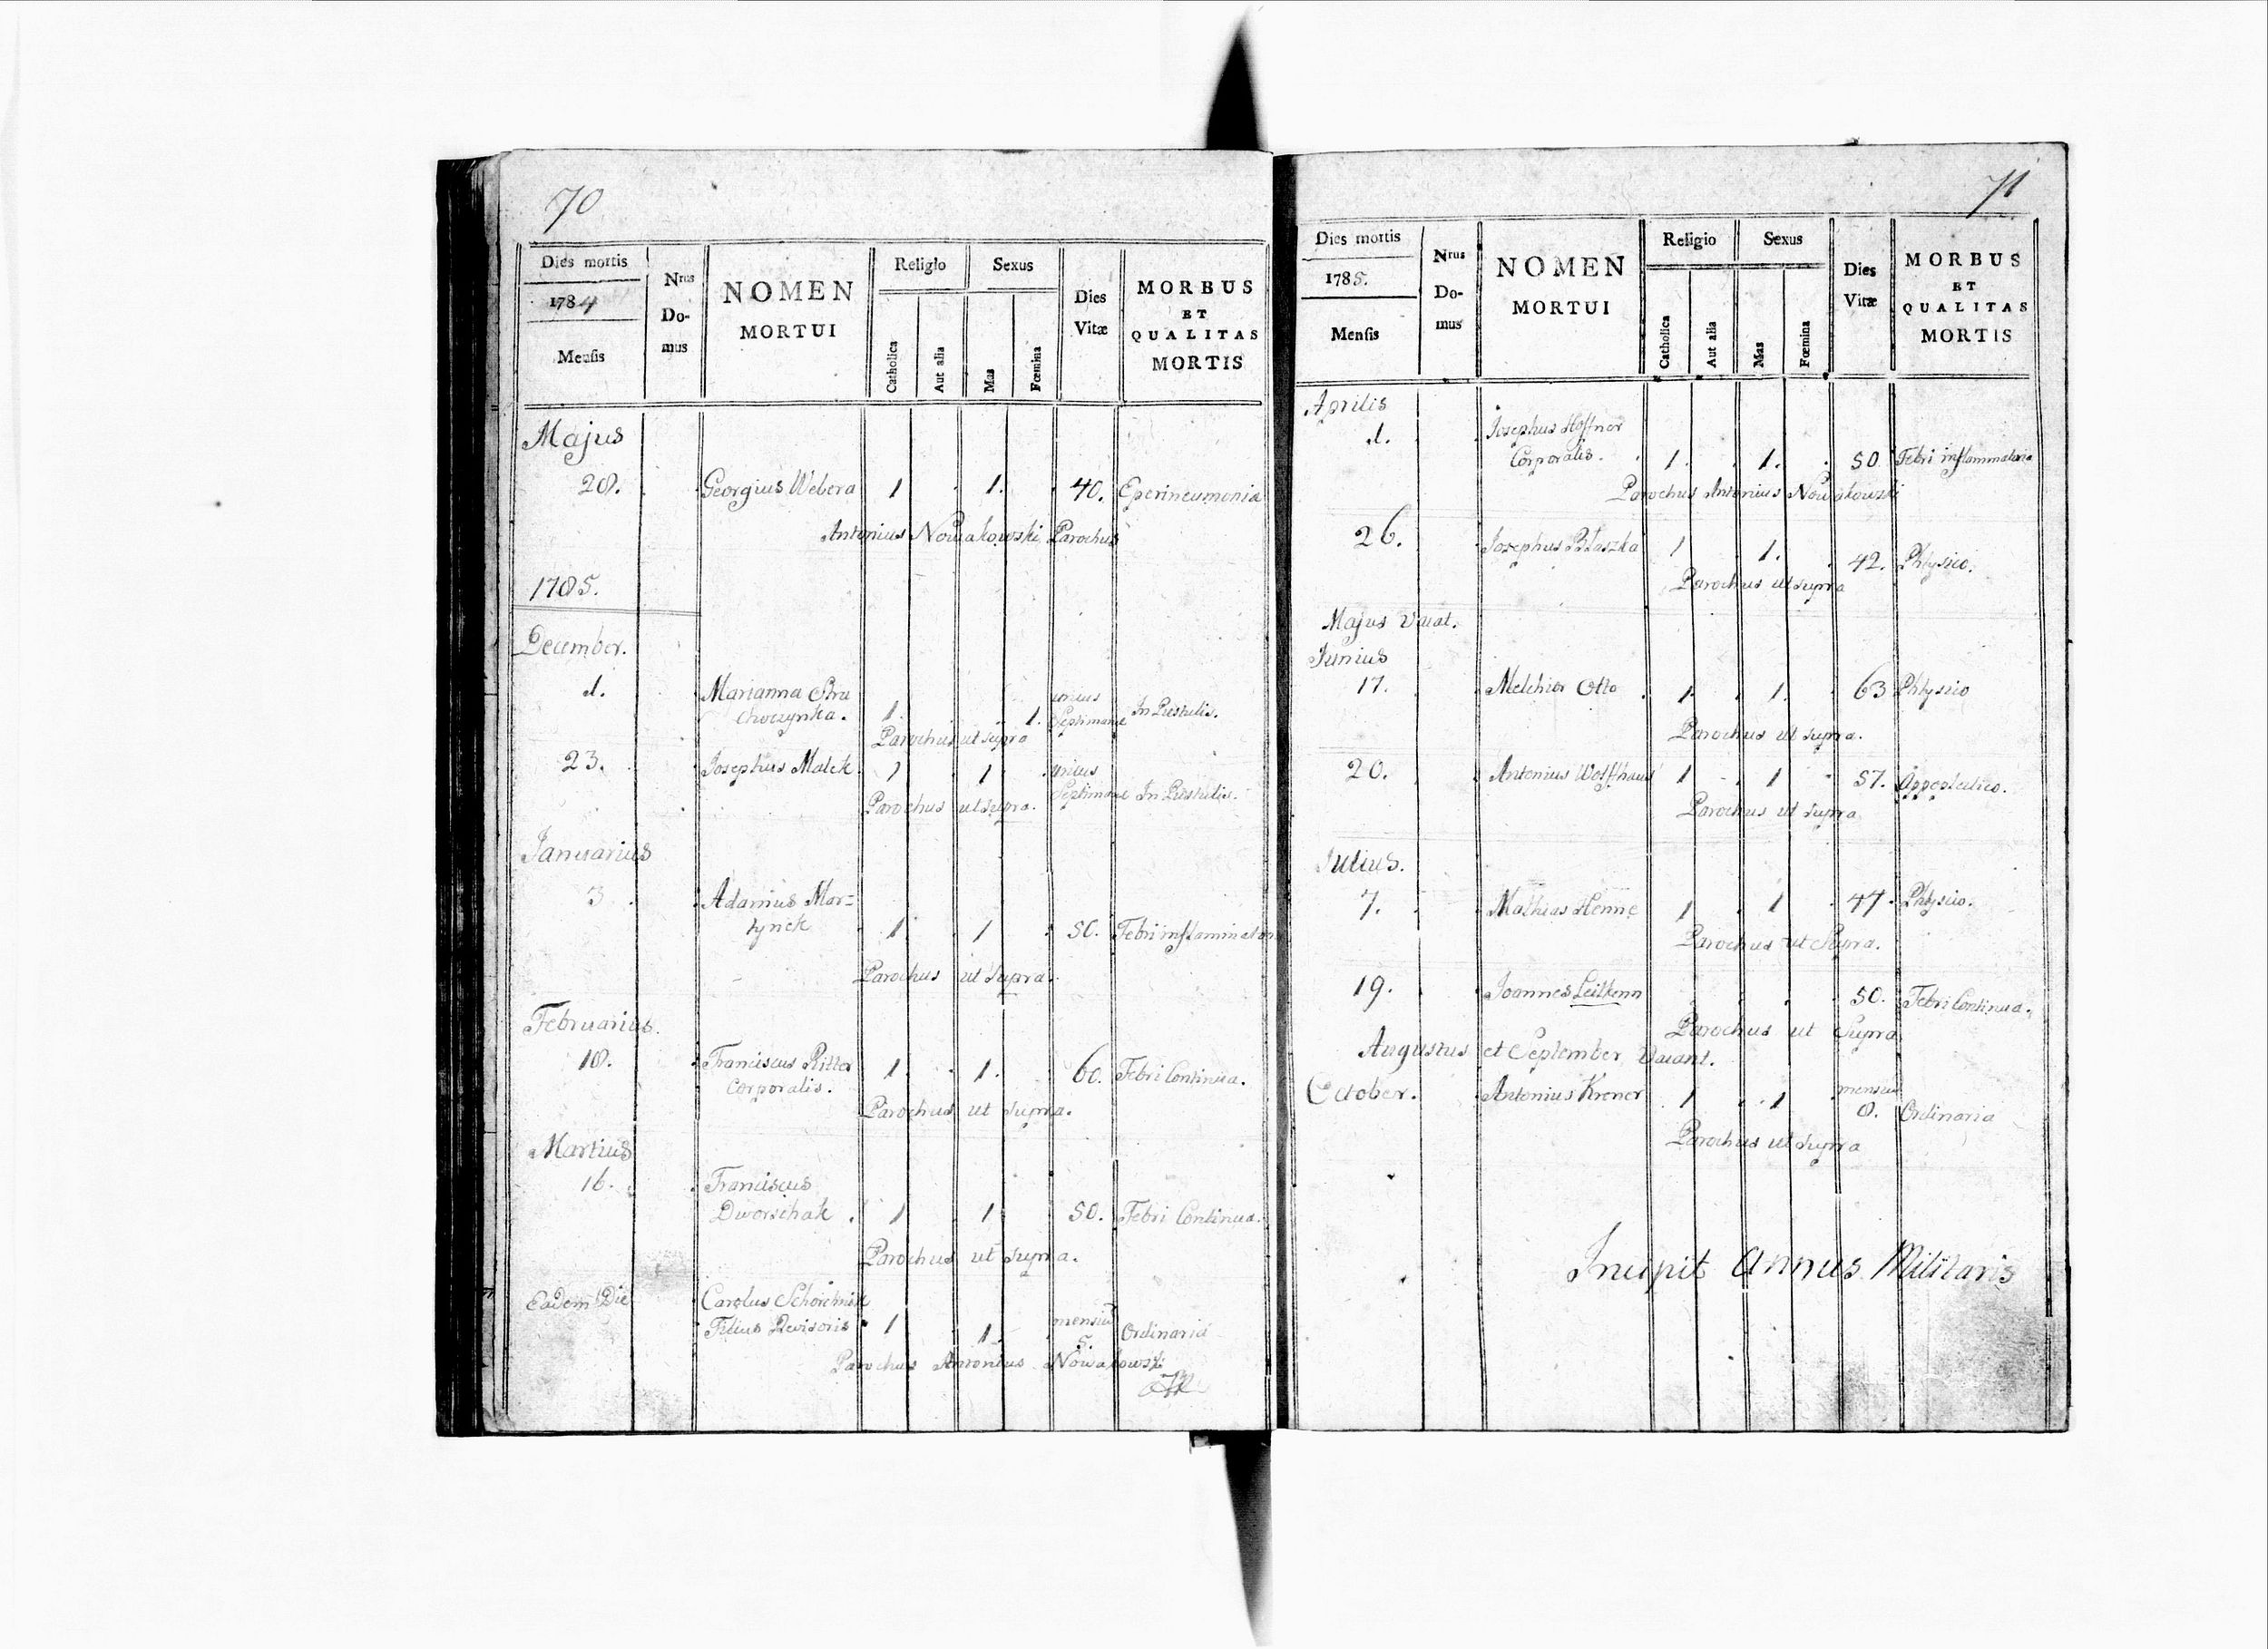 70
Dies mortis
1784
Mensis
Nrus
Do-
mus
NOMEN
MORTUI
Religio
Catholica
Aut alia
Sexus
Mas
Fœmina
Dies
Vitæ
MORBUS
ET
QUALITAS
MORTIS
Majus
28. Georgius Webera 1 1. 40. Eperineumonia
Antonius Nowakowski Parochus
1785.
December.
1. Marianna
choczynka. 1. 1. unius Septimanæ In Pustulis.
Parochus ut supra
23. Josephus Malek 1 1 unius
Septimanæ In Pustulis.
Parochus ut supra.
Januarius
3 Adamus Mar=
tynek 1 1 50. Febri inflaminator
Parochus ut supra.
Februarius.
18. Franciscus Ritter
Corporalis. 1. 1. 60. Febri Continua.
Parochus ut supra.
Martius
16. Franciscus
Dworschak. 1 1 50. Febri Continua.
Parochus ut supra.
Eadem Die Carolus
Filius Revisoris 1 1. mensium 5. Ordinaria
Parochus Antonius Nowakowski
71
Dies mortis
1785.
Mensis
Nrus
Do-
mus
NOMEN
MORTUI
Religio
Catholica
Aut alia
Sexus
Mas
Fœmina
Dies
Vitæ
MORBUS
ET
QUALITAS
MORTIS
Aprilis
1. Josephus Hoffner
Corporalis. 1. 1. 50 Febri inflammatoria
Parochus Antonius Nowakowski
26. Josephus Błaszka 1 1. 42. Phtysico.
Parochus ut supra
Majus Vacat.
Junius
17. Melchior Otto 1. 1. 63 Phtysico
Parochus ut supra.
20. Antonius 1 1 57.
Parochus ut supra
Julius.
7. Mathias Henne 1 1 47. Phtysico.
Parochus ut Supra.
19. Joannes 50. Febri Continua.
Parochus ut Supra
Augustus et September Vacant.
October. Antonius Krener 1 1 mensium
8. Ordinaria
Parochus ut supra
Incipit Annus Militaris